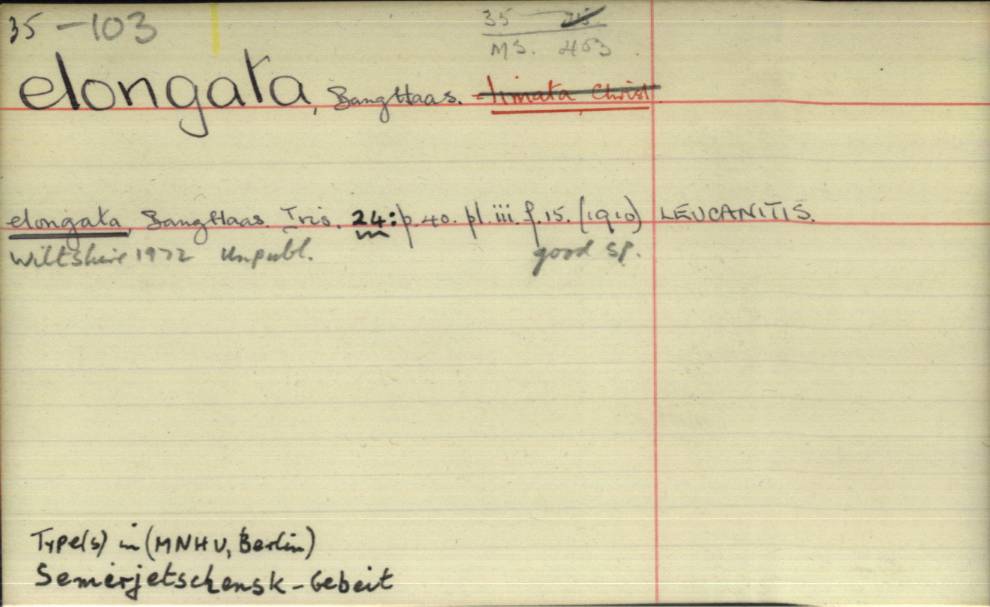 35 - 103
35 25
MS. 403
elongata, Bang Haas. = limata Christ
elongata, Bang Haas. Iris. 24: p. 40. pl. iii. f. 15. (1910) LEUCANITIS.
Wiltshire 1972 Unpubl. good sp.
Type(s) in (MNHU, Berlin)
Semirjetschensk - Gebeit